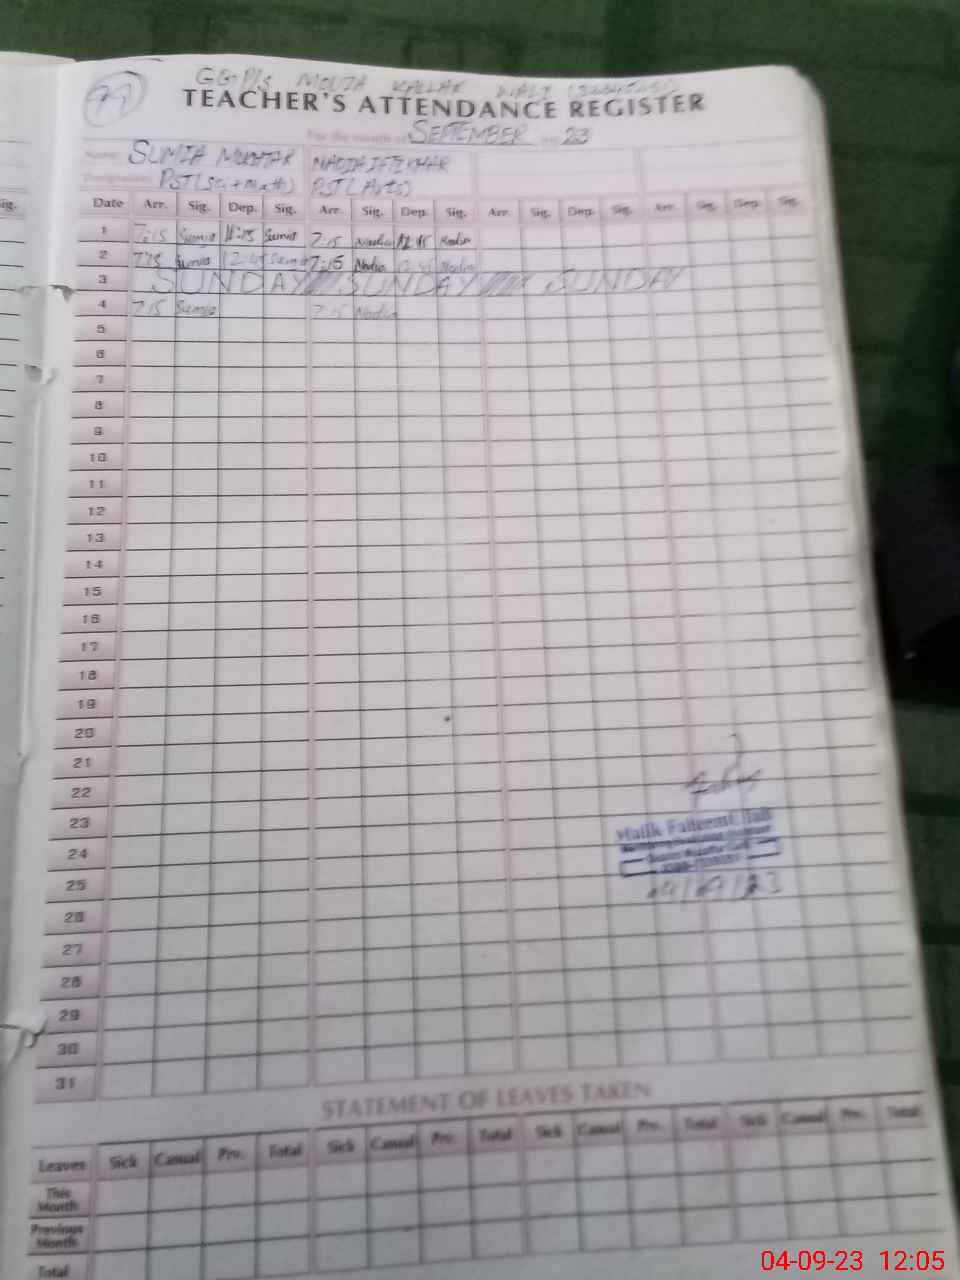 99
GGP/S MOUZA KALLAR WALI
TEACHER'S ATTENDANCE REGISTER
For the month of SEPTEMBER 23
Name SUMIA MUKHTAR NADIA IFTEKHAR
Designation PST(Sci+Math) PST(Arts)
Date Arr. Sig. Dep. Sig. Arr. Sig. Dep. Sig. Arr. Sig. Dep. Sig. Arr. Sig. Dep. Sig.
1 7:15 Sumia 11:15 Sumia 7:15 Nadia Nadia
2 715 Sumia 12:45 Sumia 7:15 Nadia 12:45 Nadia
3 SUNDAY SUNDAY SUNDAY
4 7:15 Sumia 7:15 Nadia
5
6
7
8
9
10
11
12
13
14
15
16
17
18
19
20
21
22
23
24
25
26
27
28
29
30
31
Malik
04/09/23
STATEMENT OF LEAVES TAKEN
Leaves Sick Casual Prv. Total Sick Casual Prv. Total Sick Casual Prv. Total Sick Casual Prv. Total
This Month
Previous Month
Total
04-09-23 12:05